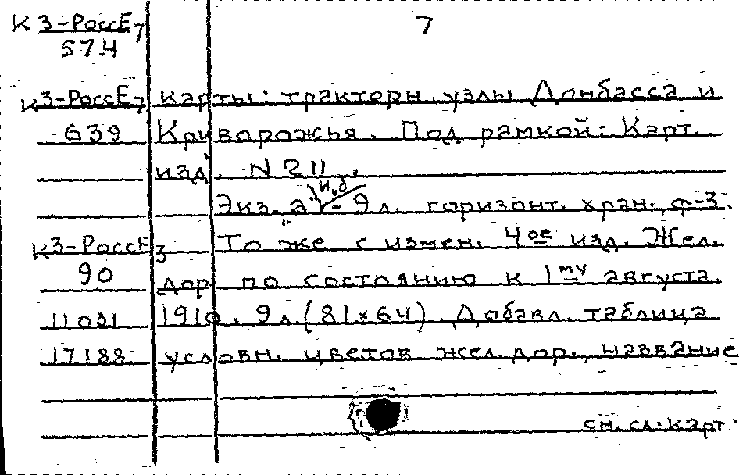 К 3-РоссЕ7
574
7
К3-РоссЕ7 карты: тракторн. узлы Донбасса и
639 Криворожья. Под рамкой: Карт.
изд. N 211.
Экз. а - 9 л. горизонт. хран. ф-3.
К3-РоссЕ3 То же с измен. 4ое изд. Жел.
90 дор по состоянию к 1му августа.
11031 1910. 9 л (81×64). Добавл. таблица
17188 условн. цветов жел дор., название
см. сл. карт.